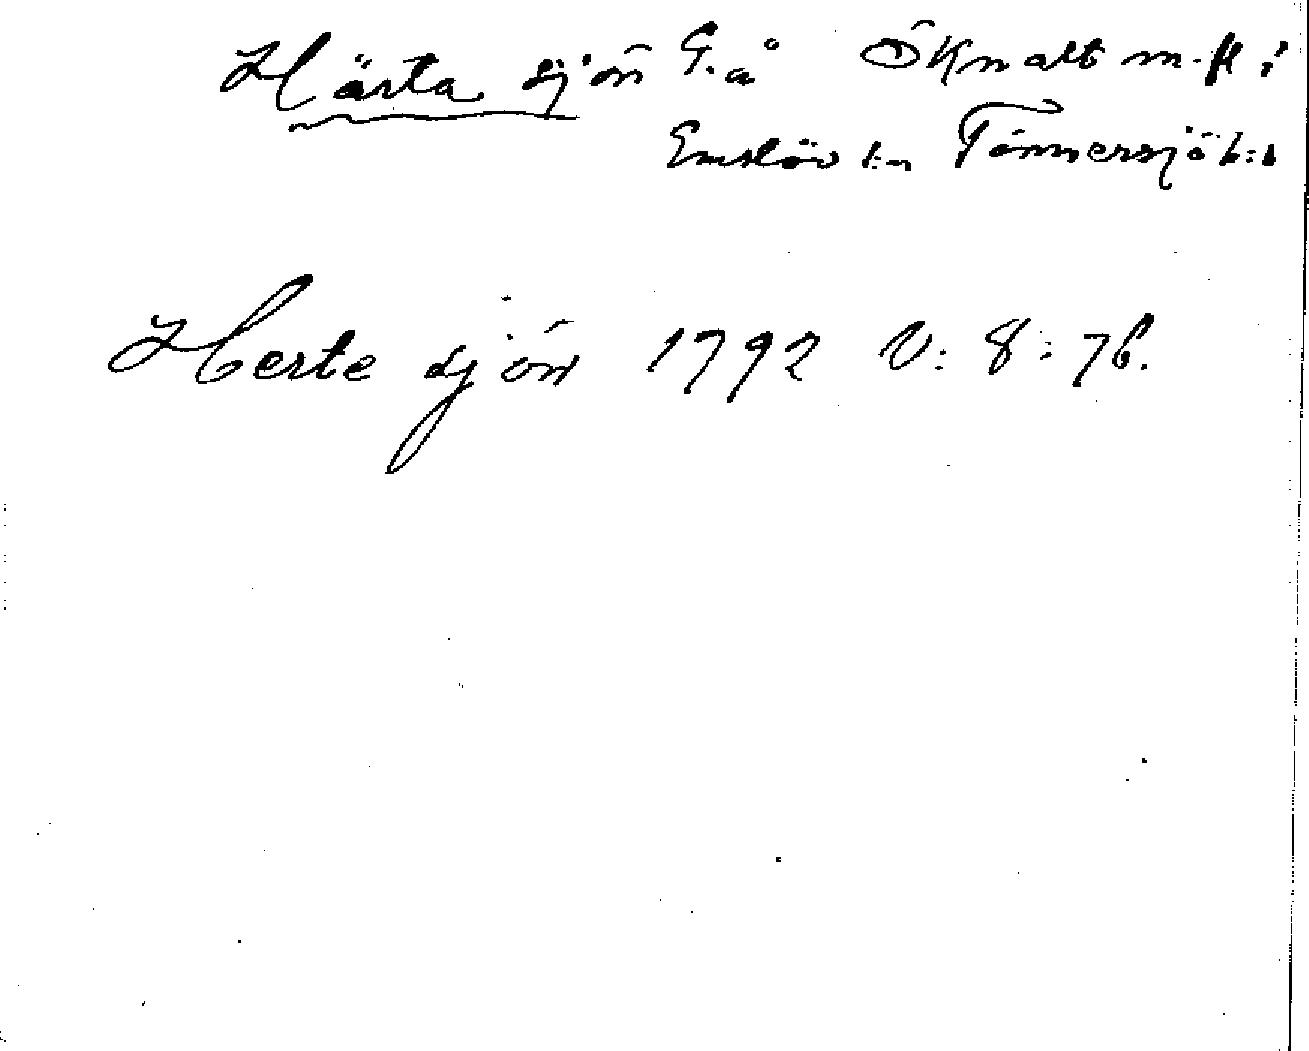 Härta sjön G. å Öknalt m.fl. i
Enslöv k:n Tönnersjö h:d
Herte sjön 1792 V: 8: 76.